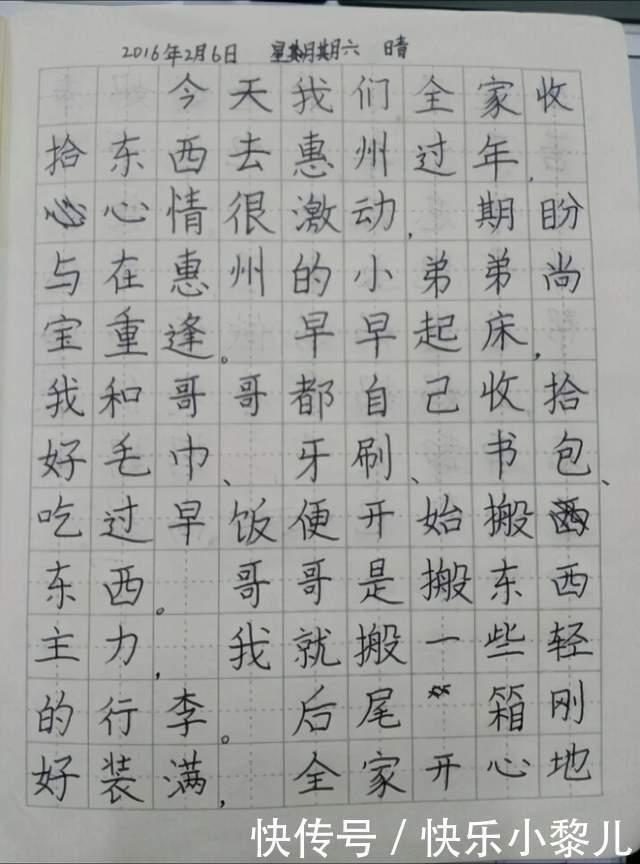 2016年2月6日 星期六 晴
今天我们全家收
拾东西去惠州过年,
心情很激动,期盼
与在惠州的小弟弟尚
宝重逢。早早起床,
我和哥哥都自己收拾
好毛巾、牙刷、书包、
吃过早饭便开始搬
东西。哥哥是搬东西
主力,我就搬一些轻
的行李。后尾箱刚
好装满,全家开心地
快传号/快乐小黎儿